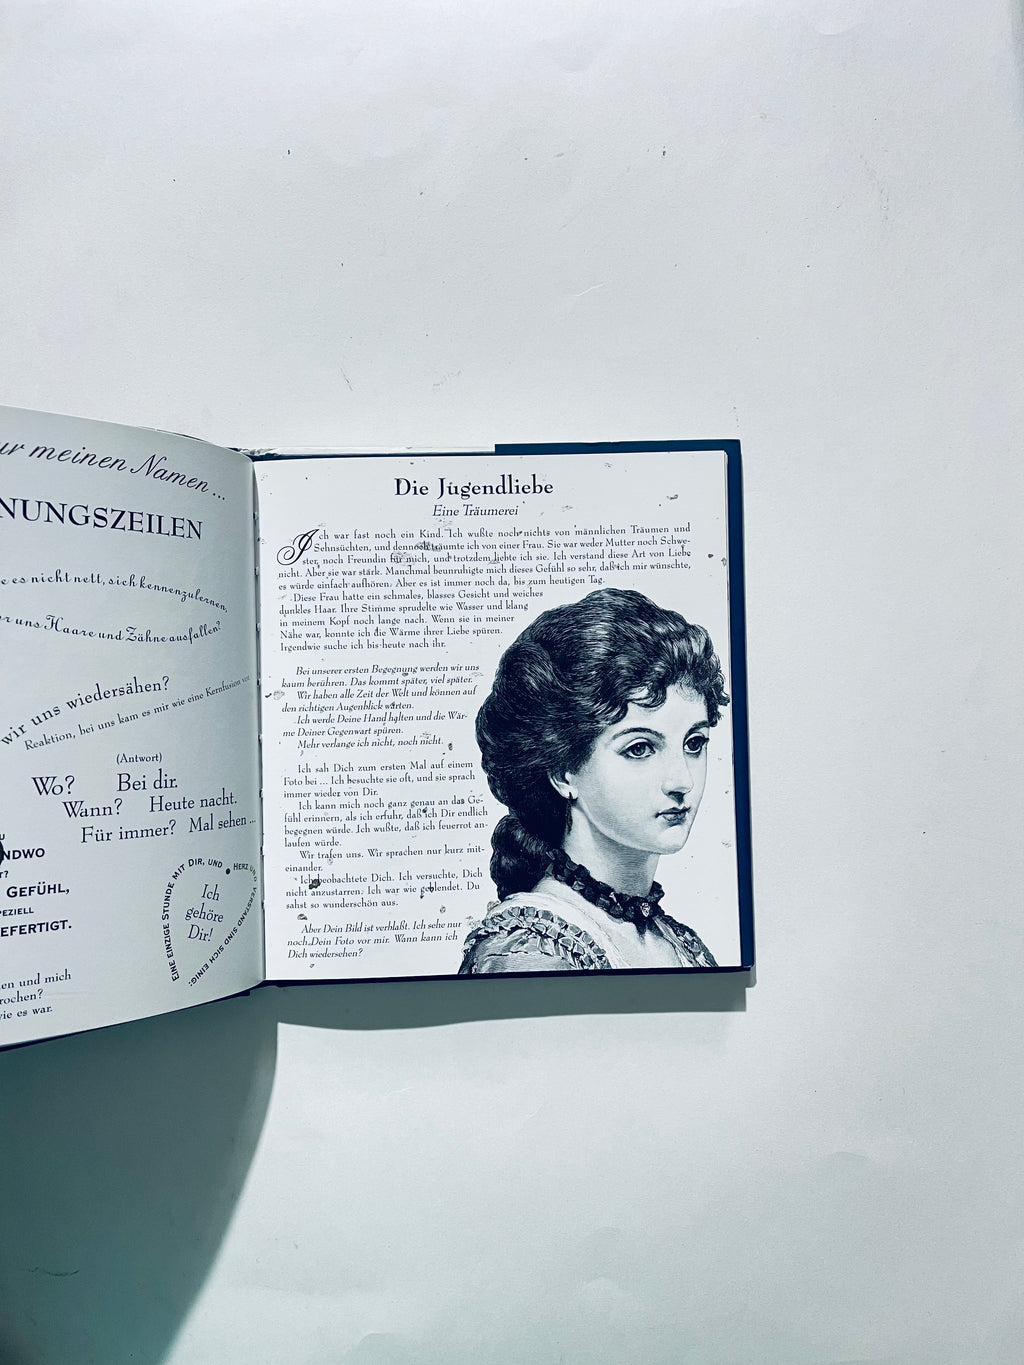 ur meinen Namen...
NUNGSZEILEN
e es nicht nett, sich kennenzulernen,
r uns Haare und Zähne ausfallen?
wir uns wiedersähen?
Reaktion, bei uns kam es mir wie eine Kernfusion vor
(Antwort)
Wo? Bei dir.
Wann? Heute nacht.
Für immer? Mal sehen...
U
NDWO
T?
GEFÜHL,
PEZIELL
EFERTIGT.
EINE EINZIGE STUNDE MIT DIR, UND • HERZ UND VERSTAND SIND SICH EINIG:
Ich
gehöre
Dir!
en und mich
rochen?
ie es war.
Die Jugendliebe
Eine Träumerei
Ich war fast noch ein Kind. Ich wußte noch nichts von männlichen Träumen und
Sehnsüchten, und dennoch träumte ich von einer Frau. Sie war weder Mutter noch Schwe-
ster, noch Freundin für mich, und trotzdem liebte ich sie. Ich verstand diese Art von Liebe
nicht. Aber sie war stark. Manchmal beunruhigte mich dieses Gefühl so sehr, daß ich mir wünschte,
es würde einfach aufhören. Aber es ist immer noch da, bis zum heutigen Tag.
Diese Frau hatte ein schmales, blasses Gesicht und weiches
dunkles Haar. Ihre Stimme sprudelte wie Wasser und klang
in meinem Kopf noch lange nach. Wenn sie in meiner
Nähe war, konnte ich die Wärme ihrer Liebe spüren.
Irgendwie suche ich bis heute nach ihr.
Bei unserer ersten Begegnung werden wir uns
kaum berühren. Das kommt später, viel später.
Wir haben alle Zeit der Welt und können auf
den richtigen Augenblick warten.
Ich werde Deine Hand halten und die Wär-
me Deiner Gegenwart spüren.
Mehr verlange ich nicht, noch nicht.
Ich sah Dich zum ersten Mal auf einem
Foto bei ... Ich besuchte sie oft, und sie sprach
immer wieder von Dir.
Ich kann mich noch ganz genau an das Ge-
fühl erinnern, als ich erfuhr, daß ich Dir endlich
begegnen würde. Ich wußte, daß ich feuerrot an-
laufen würde.
Wir trafen uns. Wir sprachen nur kurz mit-
einander.
Ich beobachtete Dich. Ich versuchte, Dich
nicht anzustarren. Ich war wie geblendet. Du
sahst so wunderschön aus.
Aber Dein Bild ist verblaßt. Ich sehe nur
noch Dein Foto vor mir. Wann kann ich
Dich wiedersehen?